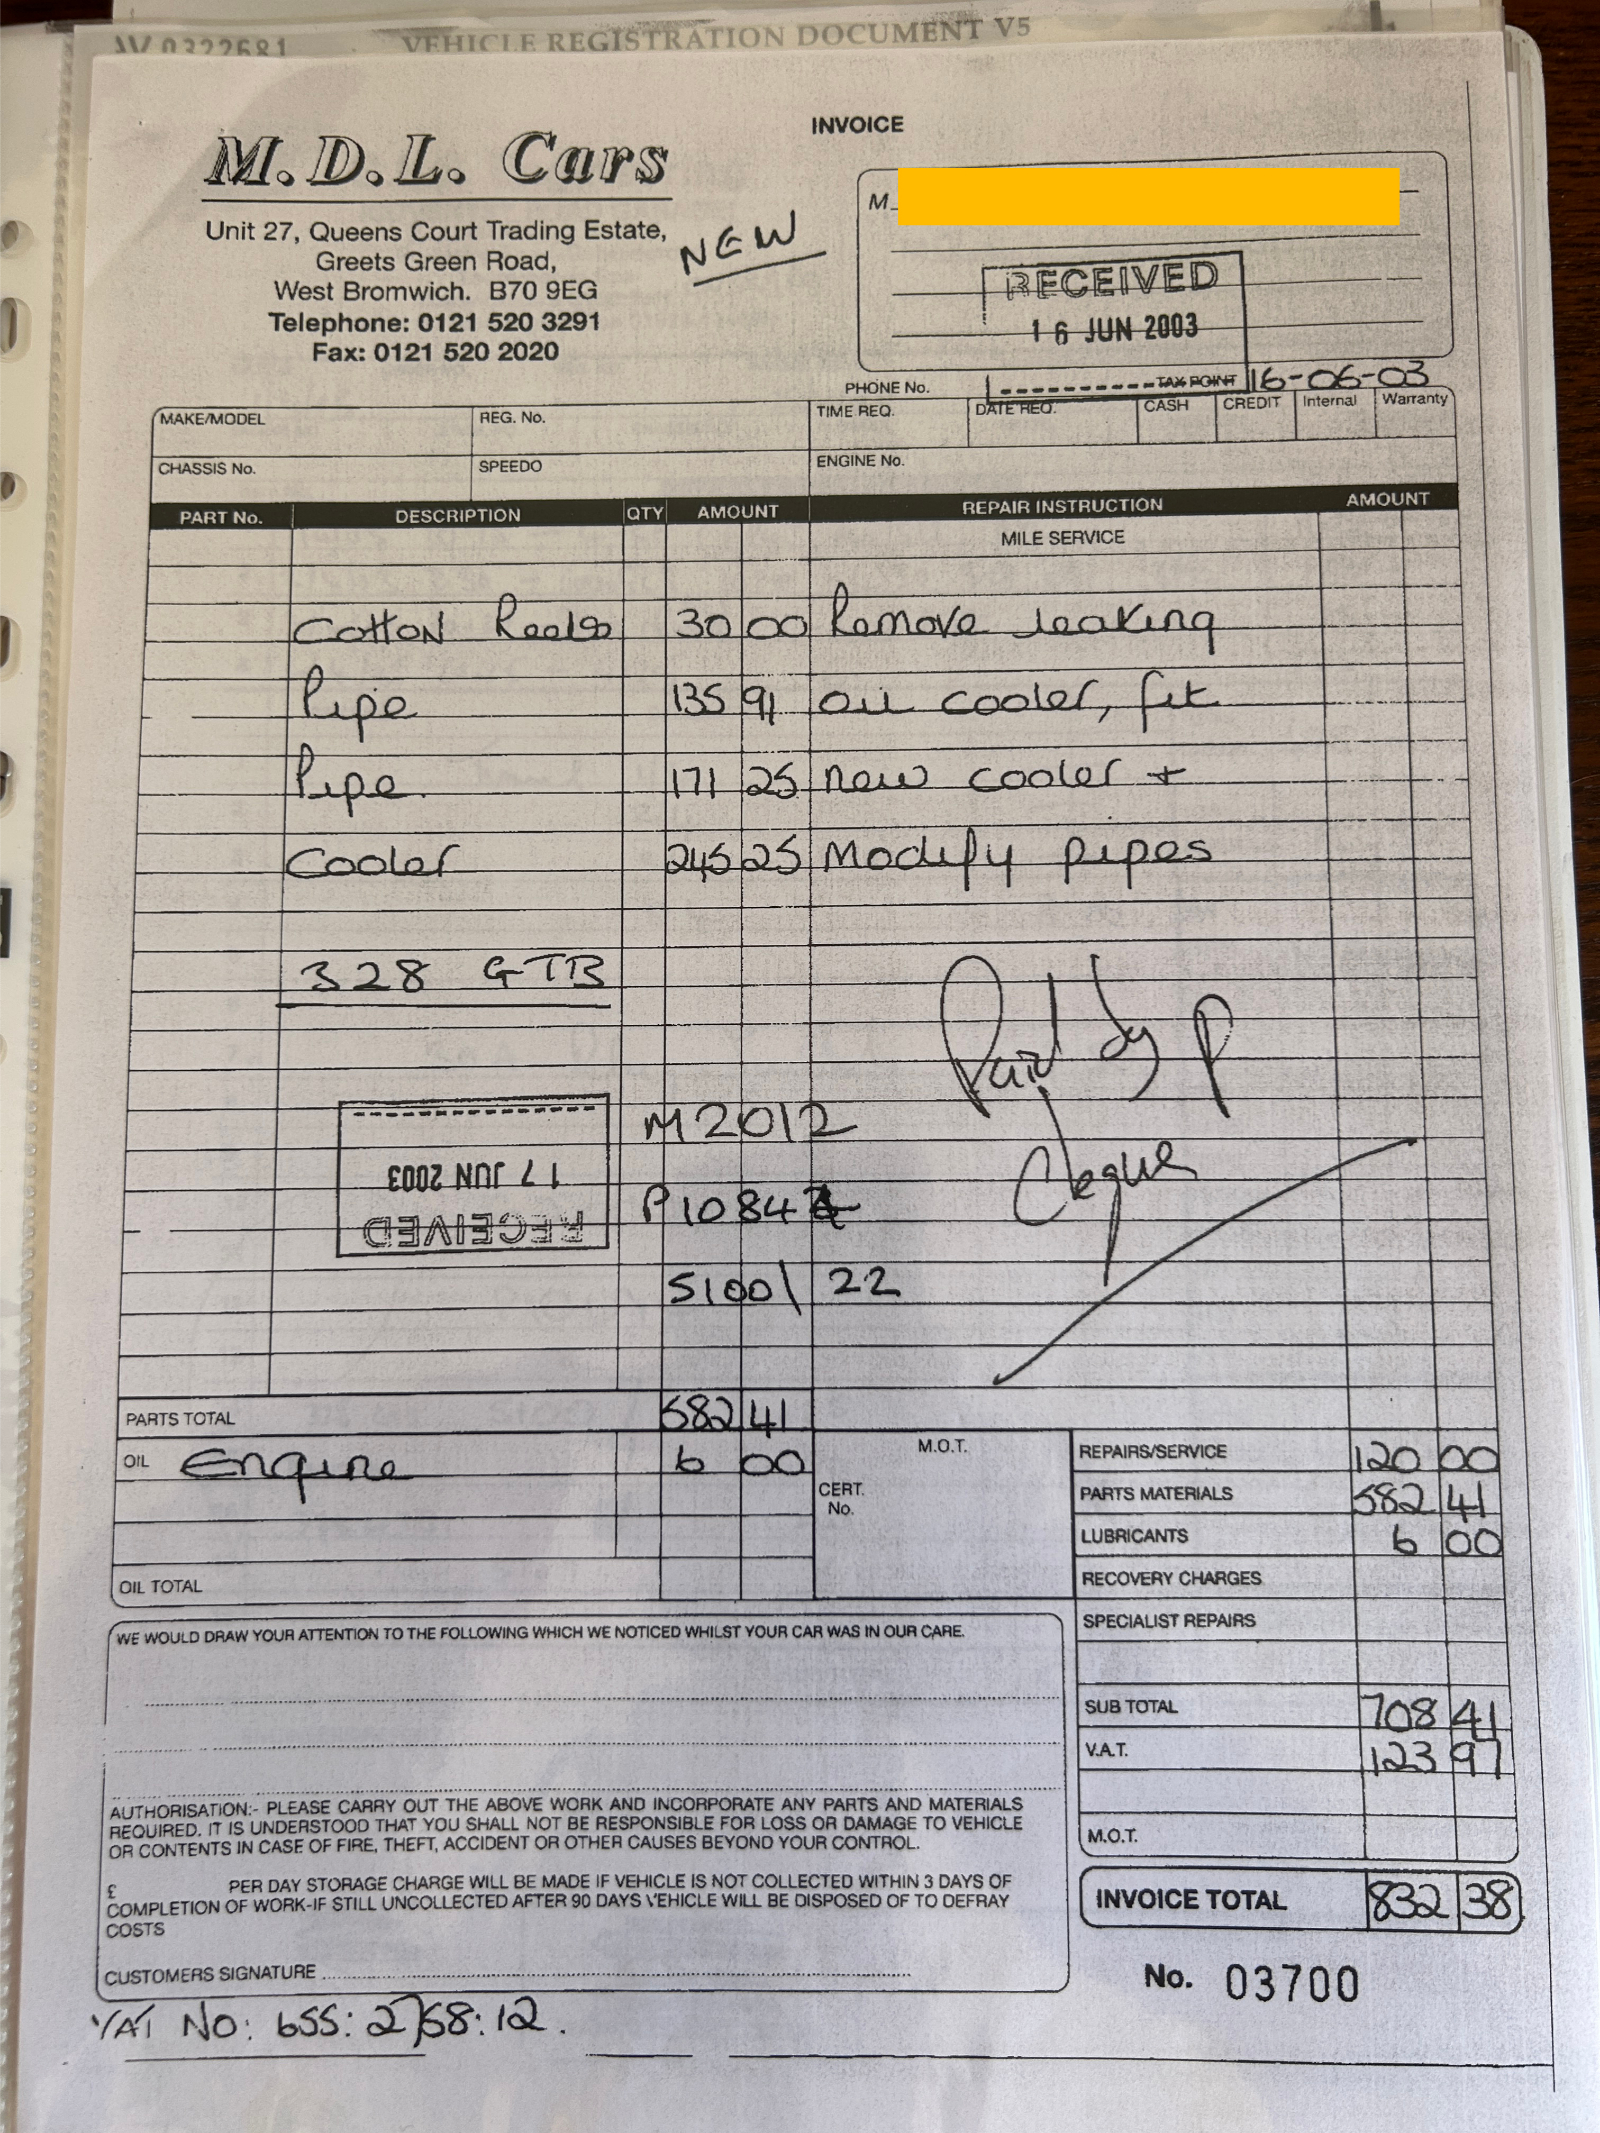 VEHICLE REGISTRATION DOCUMENT V5
INVOICE
M.D.L. Cars
Unit 27, Queens Court Trading Estate,
Greets Green Road,
West Bromwich. B70 9EG
Telephone: 0121 520 3291
Fax: 0121 520 2020
NEW
M
RECEIVED
16 JUN 2003
PHONE No. TAX POINT 16-06-03
MAKE/MODEL REG. No. TIME REQ. DATE REQ. CASH CREDIT Internal Warranty
CHASSIS No. SPEEDO ENGINE No.
PART No. DESCRIPTION QTY AMOUNT REPAIR INSTRUCTION AMOUNT
MILE SERVICE
Cotton Reels 30 00 Remove leaking
Pipe 135 91 oil cooler, fit
Pipe. 171 25 new cooler +
Cooler 245 25 Modify pipes
328 GTB
Paid by P
Cheque
M2012
RECEIVED
17 JUN 2003
P10842
51001 22
PARTS TOTAL 582 41
OIL Engine 6 00
OIL TOTAL
M.O.T.
CERT.
No.
REPAIRS/SERVICE 120 00
PARTS MATERIALS 582 41
LUBRICANTS 6 00
RECOVERY CHARGES
SPECIALIST REPAIRS
SUB TOTAL 708 41
V.A.T. 123 97
M.O.T.
INVOICE TOTAL 832 38
No. 03700
WE WOULD DRAW YOUR ATTENTION TO THE FOLLOWING WHICH WE NOTICED WHILST YOUR CAR WAS IN OUR CARE.
AUTHORISATION:- PLEASE CARRY OUT THE ABOVE WORK AND INCORPORATE ANY PARTS AND MATERIALS
REQUIRED. IT IS UNDERSTOOD THAT YOU SHALL NOT BE RESPONSIBLE FOR LOSS OR DAMAGE TO VEHICLE
OR CONTENTS IN CASE OF FIRE, THEFT, ACCIDENT OR OTHER CAUSES BEYOND YOUR CONTROL.
£ PER DAY STORAGE CHARGE WILL BE MADE IF VEHICLE IS NOT COLLECTED WITHIN 3 DAYS OF
COMPLETION OF WORK-IF STILL UNCOLLECTED AFTER 90 DAYS VEHICLE WILL BE DISPOSED OF TO DEFRAY
COSTS
CUSTOMERS SIGNATURE
VAT NO: 655:2758:12.